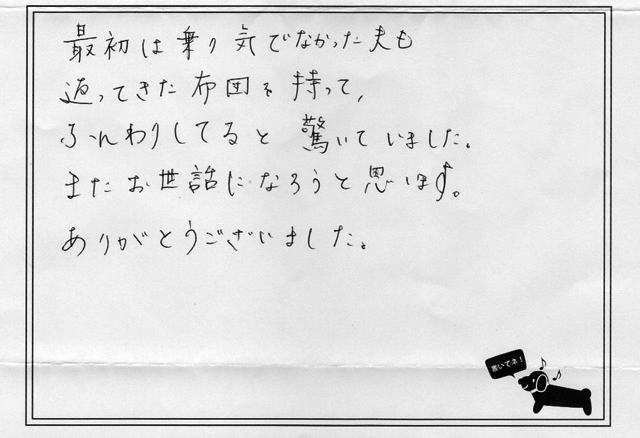 最初は乗り気でなかった夫も
返ってきた布団を持って、
ふんわりしてると驚いていました。
またお世話になろうと思います。
ありがとうございました。
書いてネ!